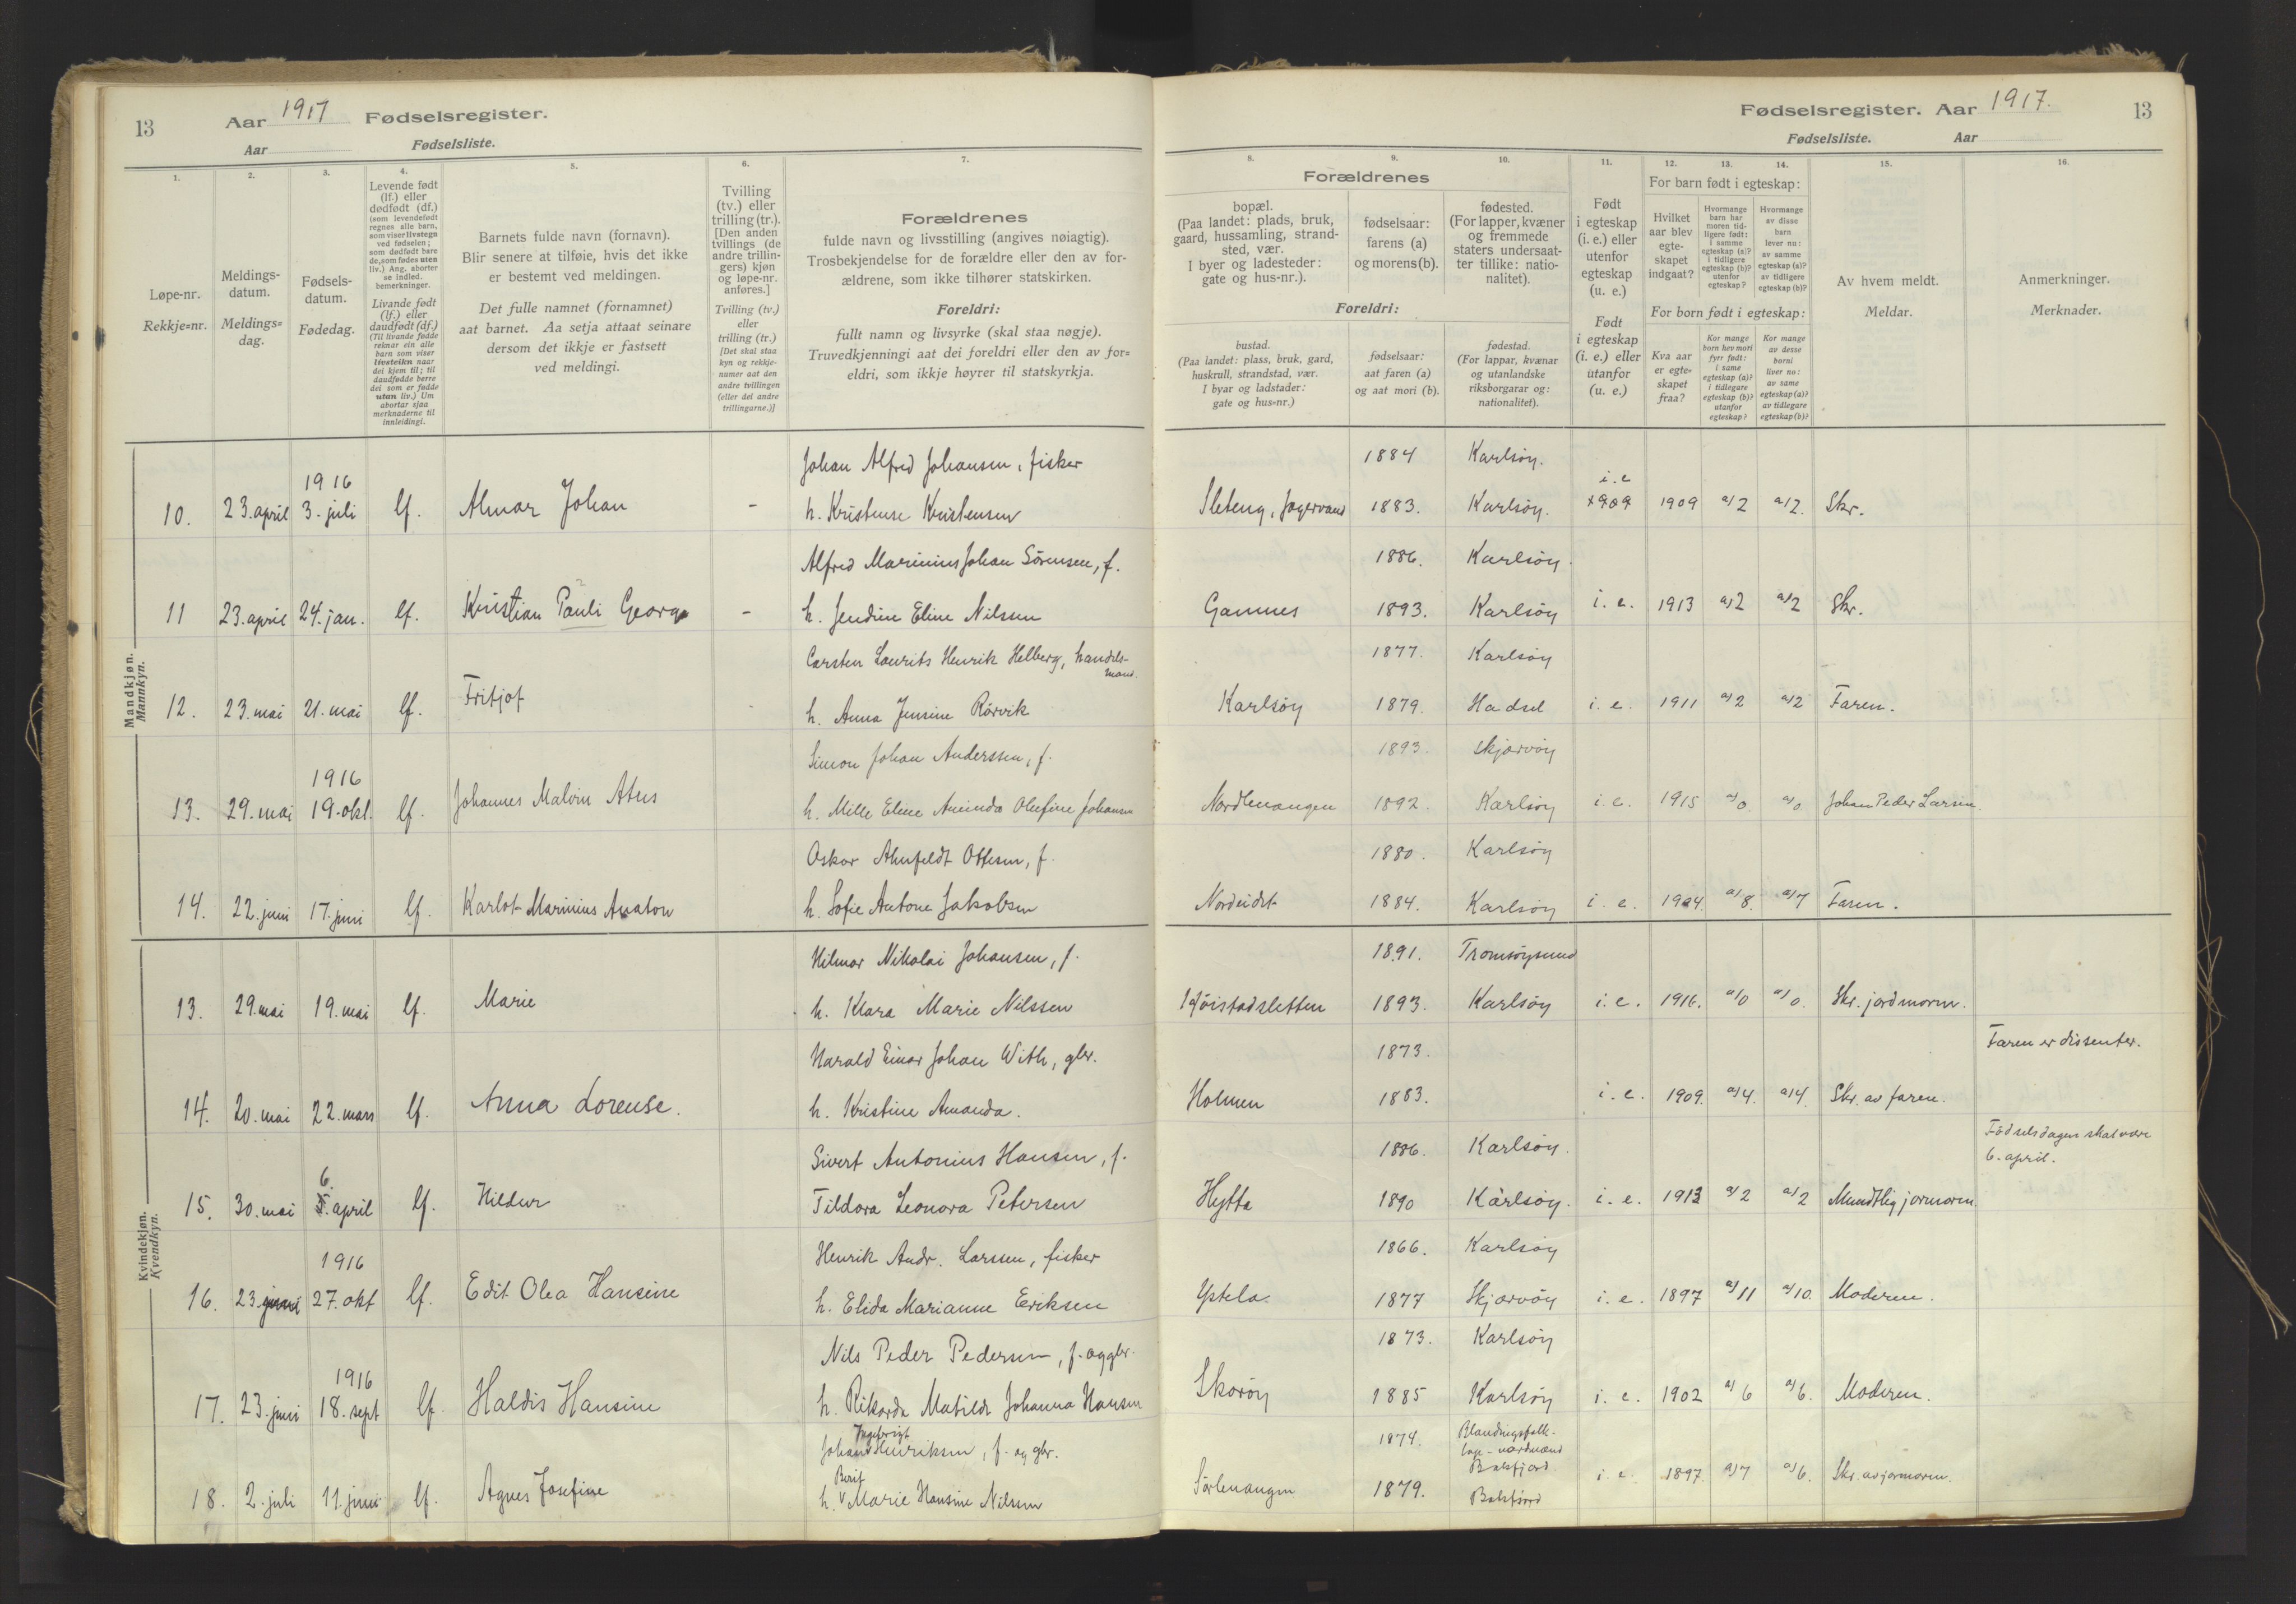 13 Aar 1917 Fødselsregister.
Aar Fødselsliste.
Fødselsregister. Aar 1917. 13
Fødselsliste. Aar
1. 2. 3. 4. 5. 6. 7.
Løpe-nr.
Rekkje=nr.
Meldings-
datum.
Meldings=
dag.
Fødsels-
datum.
Fødedag.
Levende født
(lf.) eller
dødfødt (df.)
(som levendefødt
regnes alle barn,
som viser livstegn
ved fødselen;
som dødfødt bare
de, som fødes uten
liv.) Ang. aborter
se indled.
bemerkninger.
Livande født
(lf.) eller
daudfødt (df.)
(Til livande fødde
reknar ein alle
barn som viser
livsteikn naar
dei kjem til; til
daudfødde berre
dei som er fødde
utan liv.) Um
abortar sjaa
merknaderne til
innleidingi.
Barnets fulde navn (fornavn).
Blir senere at tilføie, hvis det ikke
er bestemt ved meldingen.
Det fulle namnet (fornamnet)
aat barnet. Aa setja attaat seinare
dersom det ikkje er fastsett
ved meldingi.
Tvilling
(tv.) eller
trilling (tr.).
[Den anden
tvillings (de
andre trillin-
gers) kjøn
og løpe-nr.
anføres.]
Tvilling (tv.)
eller
trilling (tr.)
[Det skal staa
kyn og rekkje-
numer aat den
andre tvillingen
(eller dei andre
trillingarne.)]
Forældrenes
fulde navn og livsstilling (angives nøiagtig).
Trosbekjendelse for de forældre eller den av for-
ældrene, som ikke tilhører statskirken.
Foreldri:
fullt namn og livsyrke (skal staa nøgje).
Truvedkjenningi aat dei foreldri eller den av for=
eldri, som ikkje høyrer til statskyrkja.
8. 9. 10. 11. 12. 13. 14. 15. 16.
Forældrenes
bopæl.
(Paa landet: plads, bruk,
gaard, hussamling, strand-
sted, vær.
I byer og ladesteder:
gate og hus-nr.).
fødselsaar:
farens (a)
og morens (b).
fødested.
(For lapper, kvæner
og fremmede
staters undersaat-
ter tillike: natio-
nalitet).
Foreldri:
bustad.
(Paa landet: plass, bruk, gard,
huskrull, strandstad, vær.
I byar og ladstader:
gate og hus=nr.)
fødselsaar:
aat faren (a)
og aat mori (b).
fødestad.
(For lappar, kvænar
og utanlandske
riksborgarar og:
nationalitet).
Født
i egteskap
(i. e.) eller
utenfor
egteskap
(u. e.)
Født
i egteskap
(i. e.) eller
utanfor
(u. e.)
For barn født i egteskap:
Hvilket
aar blev
egte-
skapet
indgaat?
Hvormange
barn har
moren tid-
ligere født:
i samme
egteskap (a)?
i tidligere
egteskap (b)?
utenfor
egteskap?
Hvormange
av disse
barn
lever nu:
av samme
egteskap (a)?
av tidligere
egteskap (b)?
For born født i egteskap:
Kva aar
er egte=
skapet
fraa?
Kor mange
born hev mori
fyrr født:
i same
egteskap (a)?
i tidlegare
egteskap (b)?
utanfor
egteskap?
Kor mange
av desse
borni
liver no:
av same
egteskap (a)?
av tidlegare
egteskap (b)?
Av hvem meldt.
Meldar.
Anmerkninger.
Merknader.
Mandkjøn.
Mannkyn.
Johan Alfred Johansen, fisker 1884 Karlsöy.
1916 i.e
10. 23. april 3. juli lf. Almar Johan - h. Kristense Kristensen Sleteng, Jægervand 1883. Karlsöy. 1909 1909 a/2 a/2. Skr.
Alfred Marinius Johan Sörensen, f. 1886. Karlsöy.
11 23. april 24. jan. lf. Kristian Pauli Georg - h. Jendine Eline Nilsen Gamnes 1893. Karlsöy i. e. 1913 a/2 a/2 Skr.
Carsten Laurits Henrik Helberg, handels-
mand. 1877. Karlsöy
12. 23. mai 21. mai lf. Fritjof h. Anna Jensine Rörvik Karlsöy 1879. Hadsel i. e. 1911 a/2 a/2 Faren.
Simon Johan Anderssen, f. 1893. Skjærvöy
1916
13. 29. mai 19. okt. lf. Johannes Malvin Atus h. Mille Eline Aminda Olufine Johansen Nordlenangen 1892. Karlsöy i. e. 1915 a/0. a/0 Johan Peder Larsen.
Oskar Ahnfeldt Ottesen, f. 1880. Karlsöy
14. 22. juni 17. juni lf. Karlot Marinius Anaton h. Sofie Antone Jakobsen Nordeidet 1884. Karlsöy i. e. 1904. a/8. a/7 Faren.
Kvindekjøn.
Kvendkyn.
Hilmar Nikolai Johansen, f. 1891. Tromsöysund
13. 29. mai 19. mai lf. Marie h. Klara Marie Nilssen Kjöistadsletten 1893. Karlsöy i. e. 1916. a/0 a/0. Skr. jordmoren.
Harald Einar Johan With, gbr. 1873. Faren er dissenter.
14. 20. mai 22. mars lf. Anna Lorense. h. Kristine Amanda. Holmen 1883. i. e. 1909. a/4. a/4. Skr. av faren.
Sivert Antonius Hansen, f. 1886. Karlsöy. Födselsdagen skal være
6. april.
6.
15. 30. mai 5. april lf. Hildur Tildora Leonora Petersen Hytta 1890 Karlsöy. i. e. 1913 a/2 a/2 Mundtlig jormoren.
Henrik Andr. Larssen, fisker 1866. Karlsöy
1916
16. 23. juni 27. okt lf. Edit Olea Hansine h. Elida Marianne Eriksen Ystela. 1877 Skjærvöy i. e. 1897 a/11 a/10. Moderen.
Nils Peder Pedersen, f. og gbr. 1873. Karlsöy
1916
17. 23. juni 18. sept lf. Haldis Hansine h. Rikarda Matilde Johanna Hansen Skoröy 1885 Karlsöy i. e. 1902 a/6 a/6. Moderen.
Ingebrigt
Johan Henriksen, f. og gbr. 1874. Blandingsfolk-
lap-nordmænd
Balsfjord.
Berit
18. 2. juli 11. juni lf. Agnes Josefine h. Marie Hansine Nilsen Sörlenangen 1879. Balsfjord i. e. 1897. a/7 a/6. Skr. av jormoren.